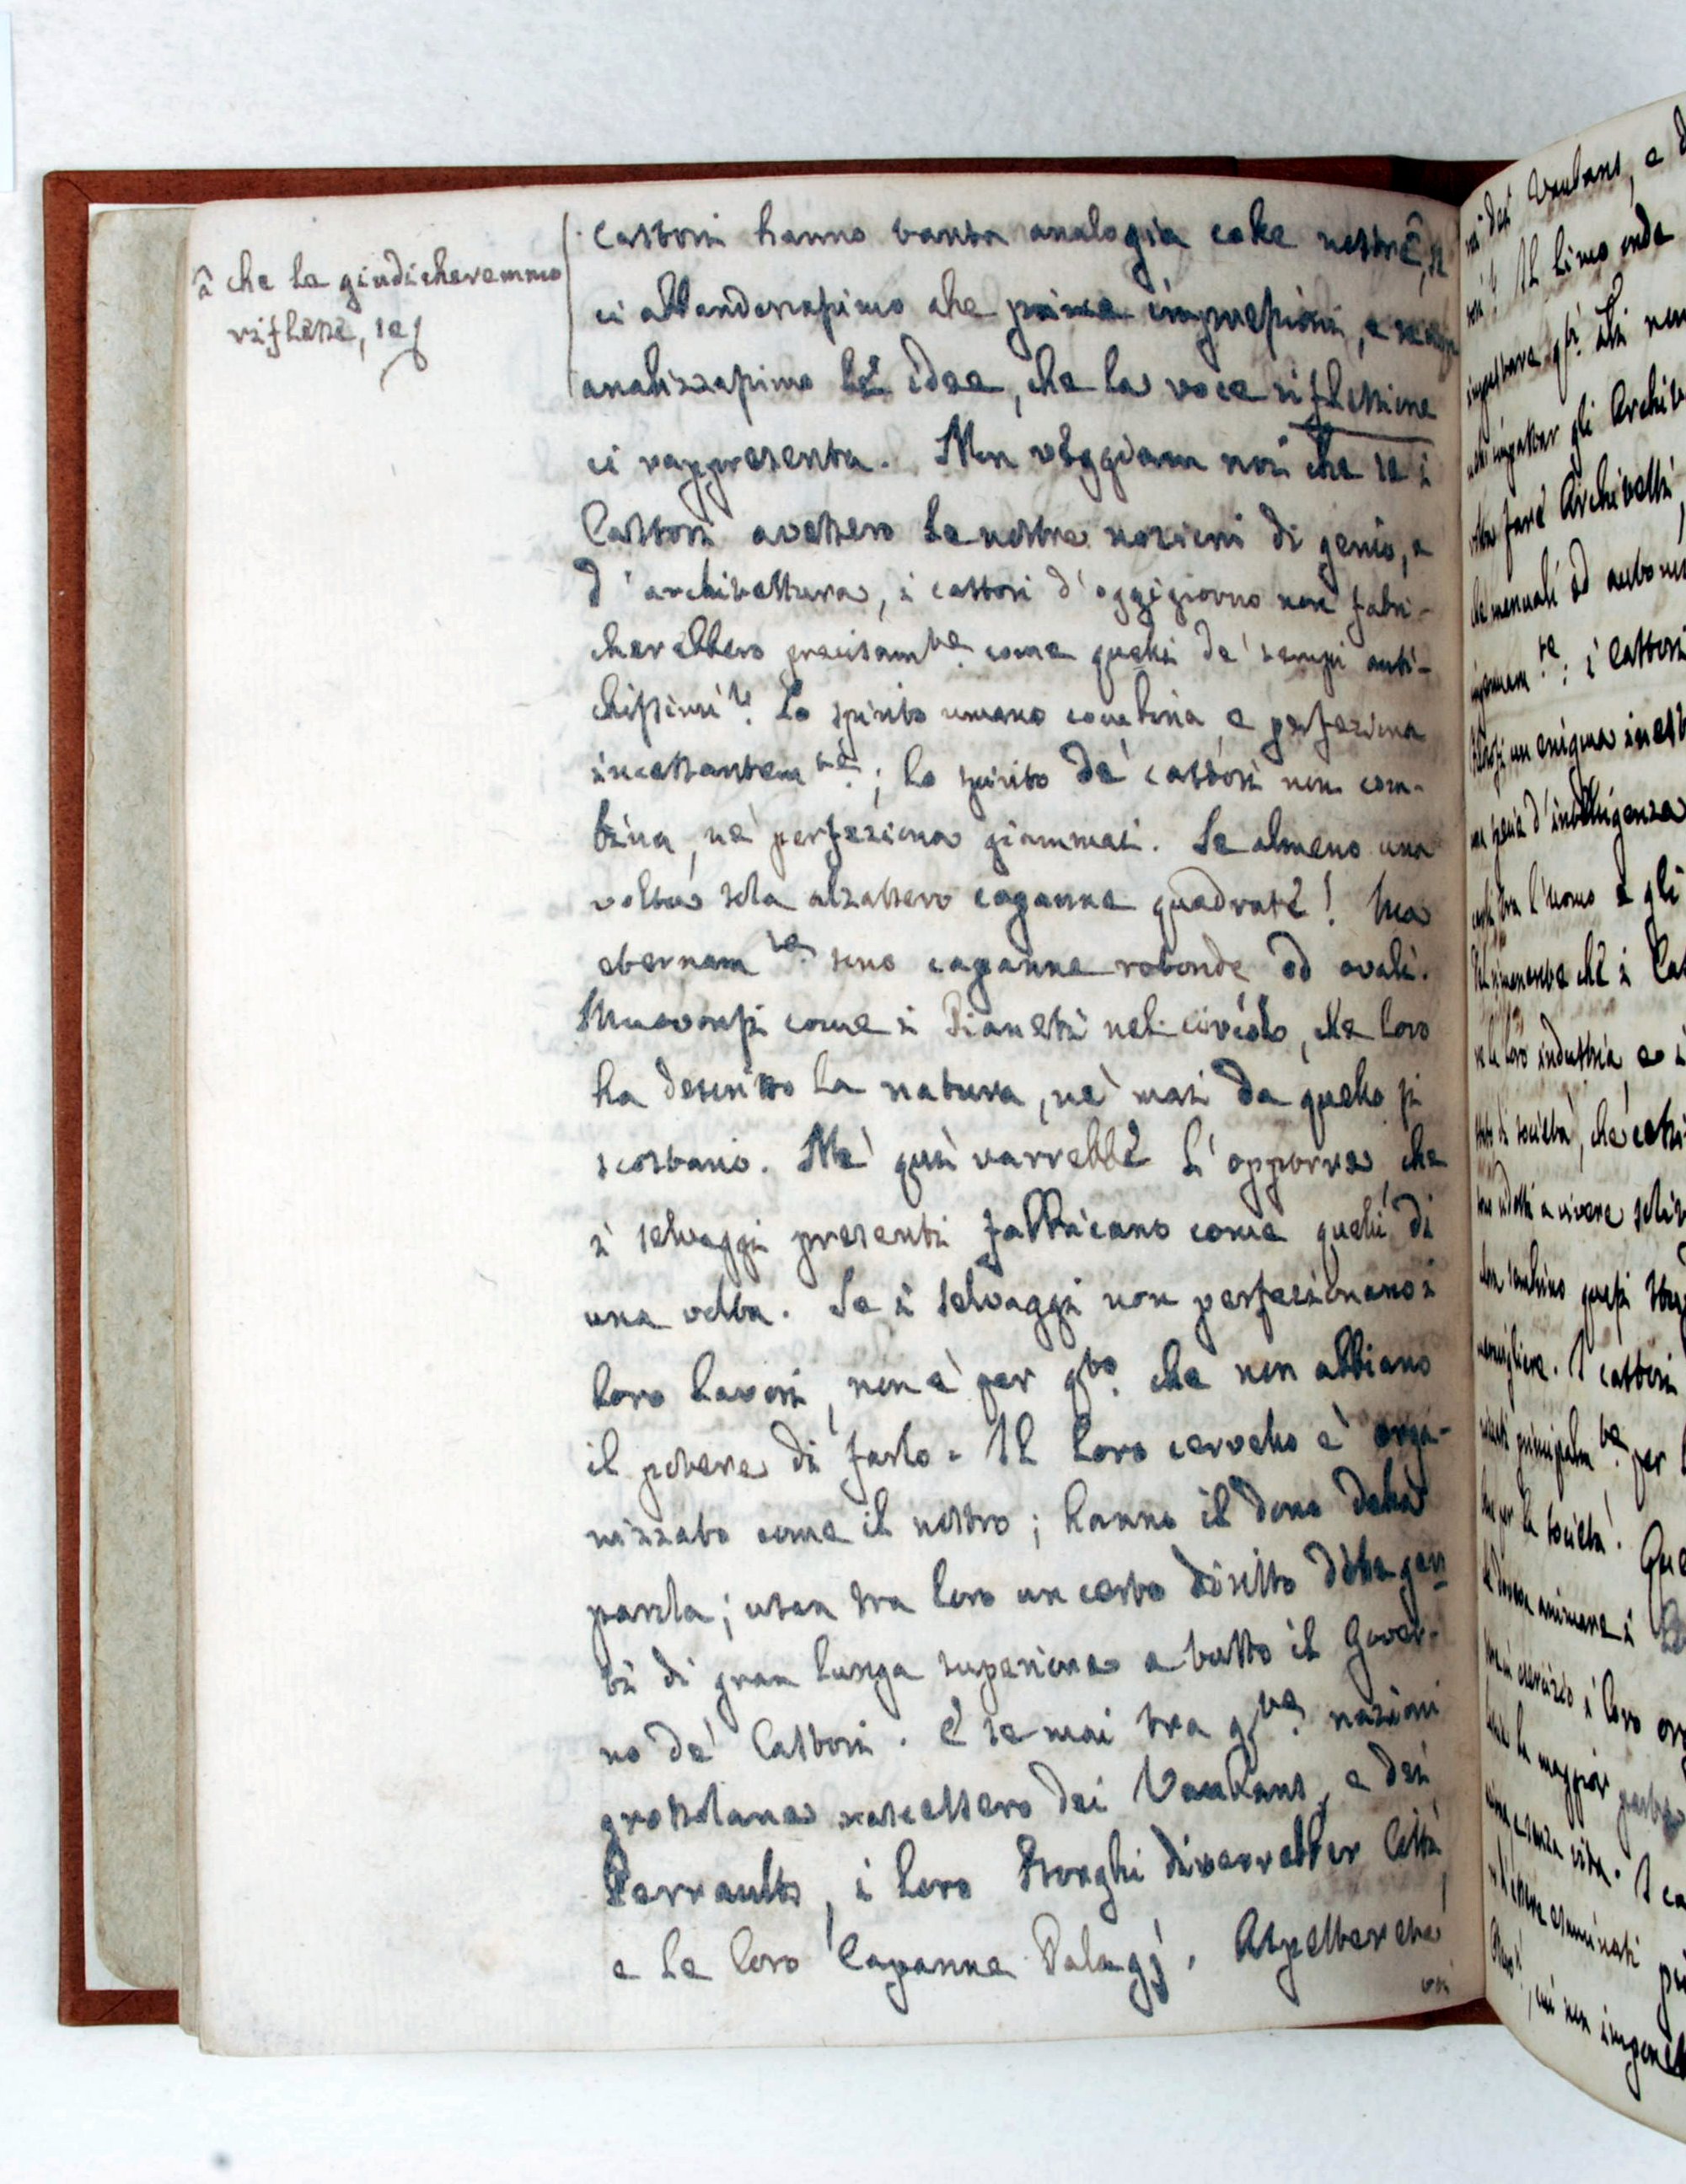 â che la giudicheremmo
riflesse, se
Castori hanno tanta analogia colle nostre^, se
ci abbandonassimo alle prime impressioni, e non
analizzassimo le idee, che la voce riflessione
ci rappresenta. Non veggiam noi che se i
Castori avessero le nostre nozioni di genio, e
d'architettura, i castori d'oggigiorno non fabri-
cherebbero precisamte. come quelli de' tempi anti-
chissimi? Lo spirito umano combina, e perfeziona
incessantemte.; lo spirito de' castori non com-
bina, nè perfeziona giammai. Se almeno una
volta sola alzassero capanne quadrate! Ma
eternamte. sono capanne rotonde od ovali.
Muovonsi come i Pianeti nel circolo, che loro
ha descritto la natura, nè mai da quello si
scostano. Nè quì varrebbe l'opporre che
i selvaggi presenti fabbricano come quelli di
una volta. Se i selvaggi non perfezionano i
loro lavori, non è per qto. che non abbiano
il potere di farlo. Il loro cervello è orga-
nizzato come il nostro; hanno il dono della
parola; usan tra loro un certo diritto delle gen-
ti di gran lunga superiore a tutto il Gover-
no de' Castori. E se mai tra qte. nazioni
grossolane nascessero dei Vaubans, e dei
Perraults, i loro Borghi diverrebber Città,
e le loro Capanne Palagj. Aspetterete
voi
rà dei Vaubans, e d
Il limo onde
impastare qti.
impastar gli Archit
fare Architetti,
te.; i Castori
un enigma
d'intelligenza
tra l'uomo e gli
che i Cas
loro industria e i
di società, che
a vivere
I castori
principalmte. per l
per la società. Que
i loro or
la maggior parte
e senza vita. I ca
esaminati più
cui non